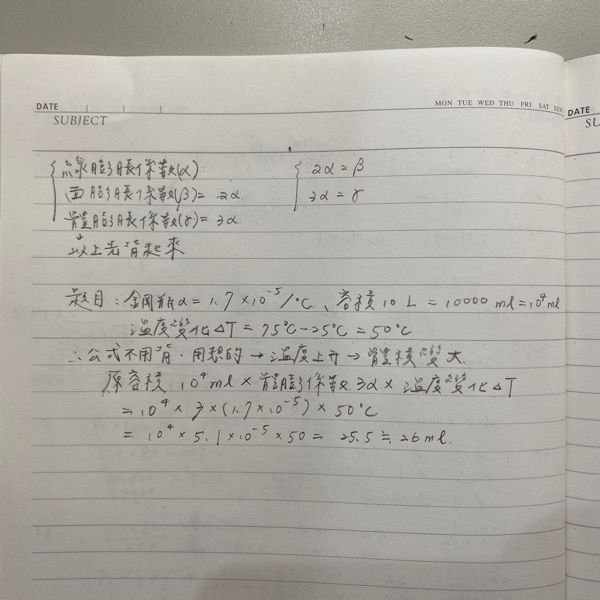 DATE
MON TUE WED THU FRI SAT SUN
SUBJECT
線膨脹係數(α)
面膨脹係數(β)= 2α
體膨脹係數(γ)= 3α
2α = β
3α = γ
以上先背起來
題目:銅瓶α = 1.7 × 10⁻⁵/°C、容積 10 L = 10000 ml = 10⁴ ml
溫度變化ΔT = 75°C - 25°C = 50°C
∴公式不用背,用想的 → 溫度上升 → 體積變大.
原容積 10⁴ ml × 體膨脹係數 3α × 溫度變化ΔT
= 10⁴ × 3 × (1.7 × 10⁻⁵) × 50°C
= 10⁴ × 5.1 × 10⁻⁵ × 50 = 25.5 ≒ 26 ml.
DATE
SU